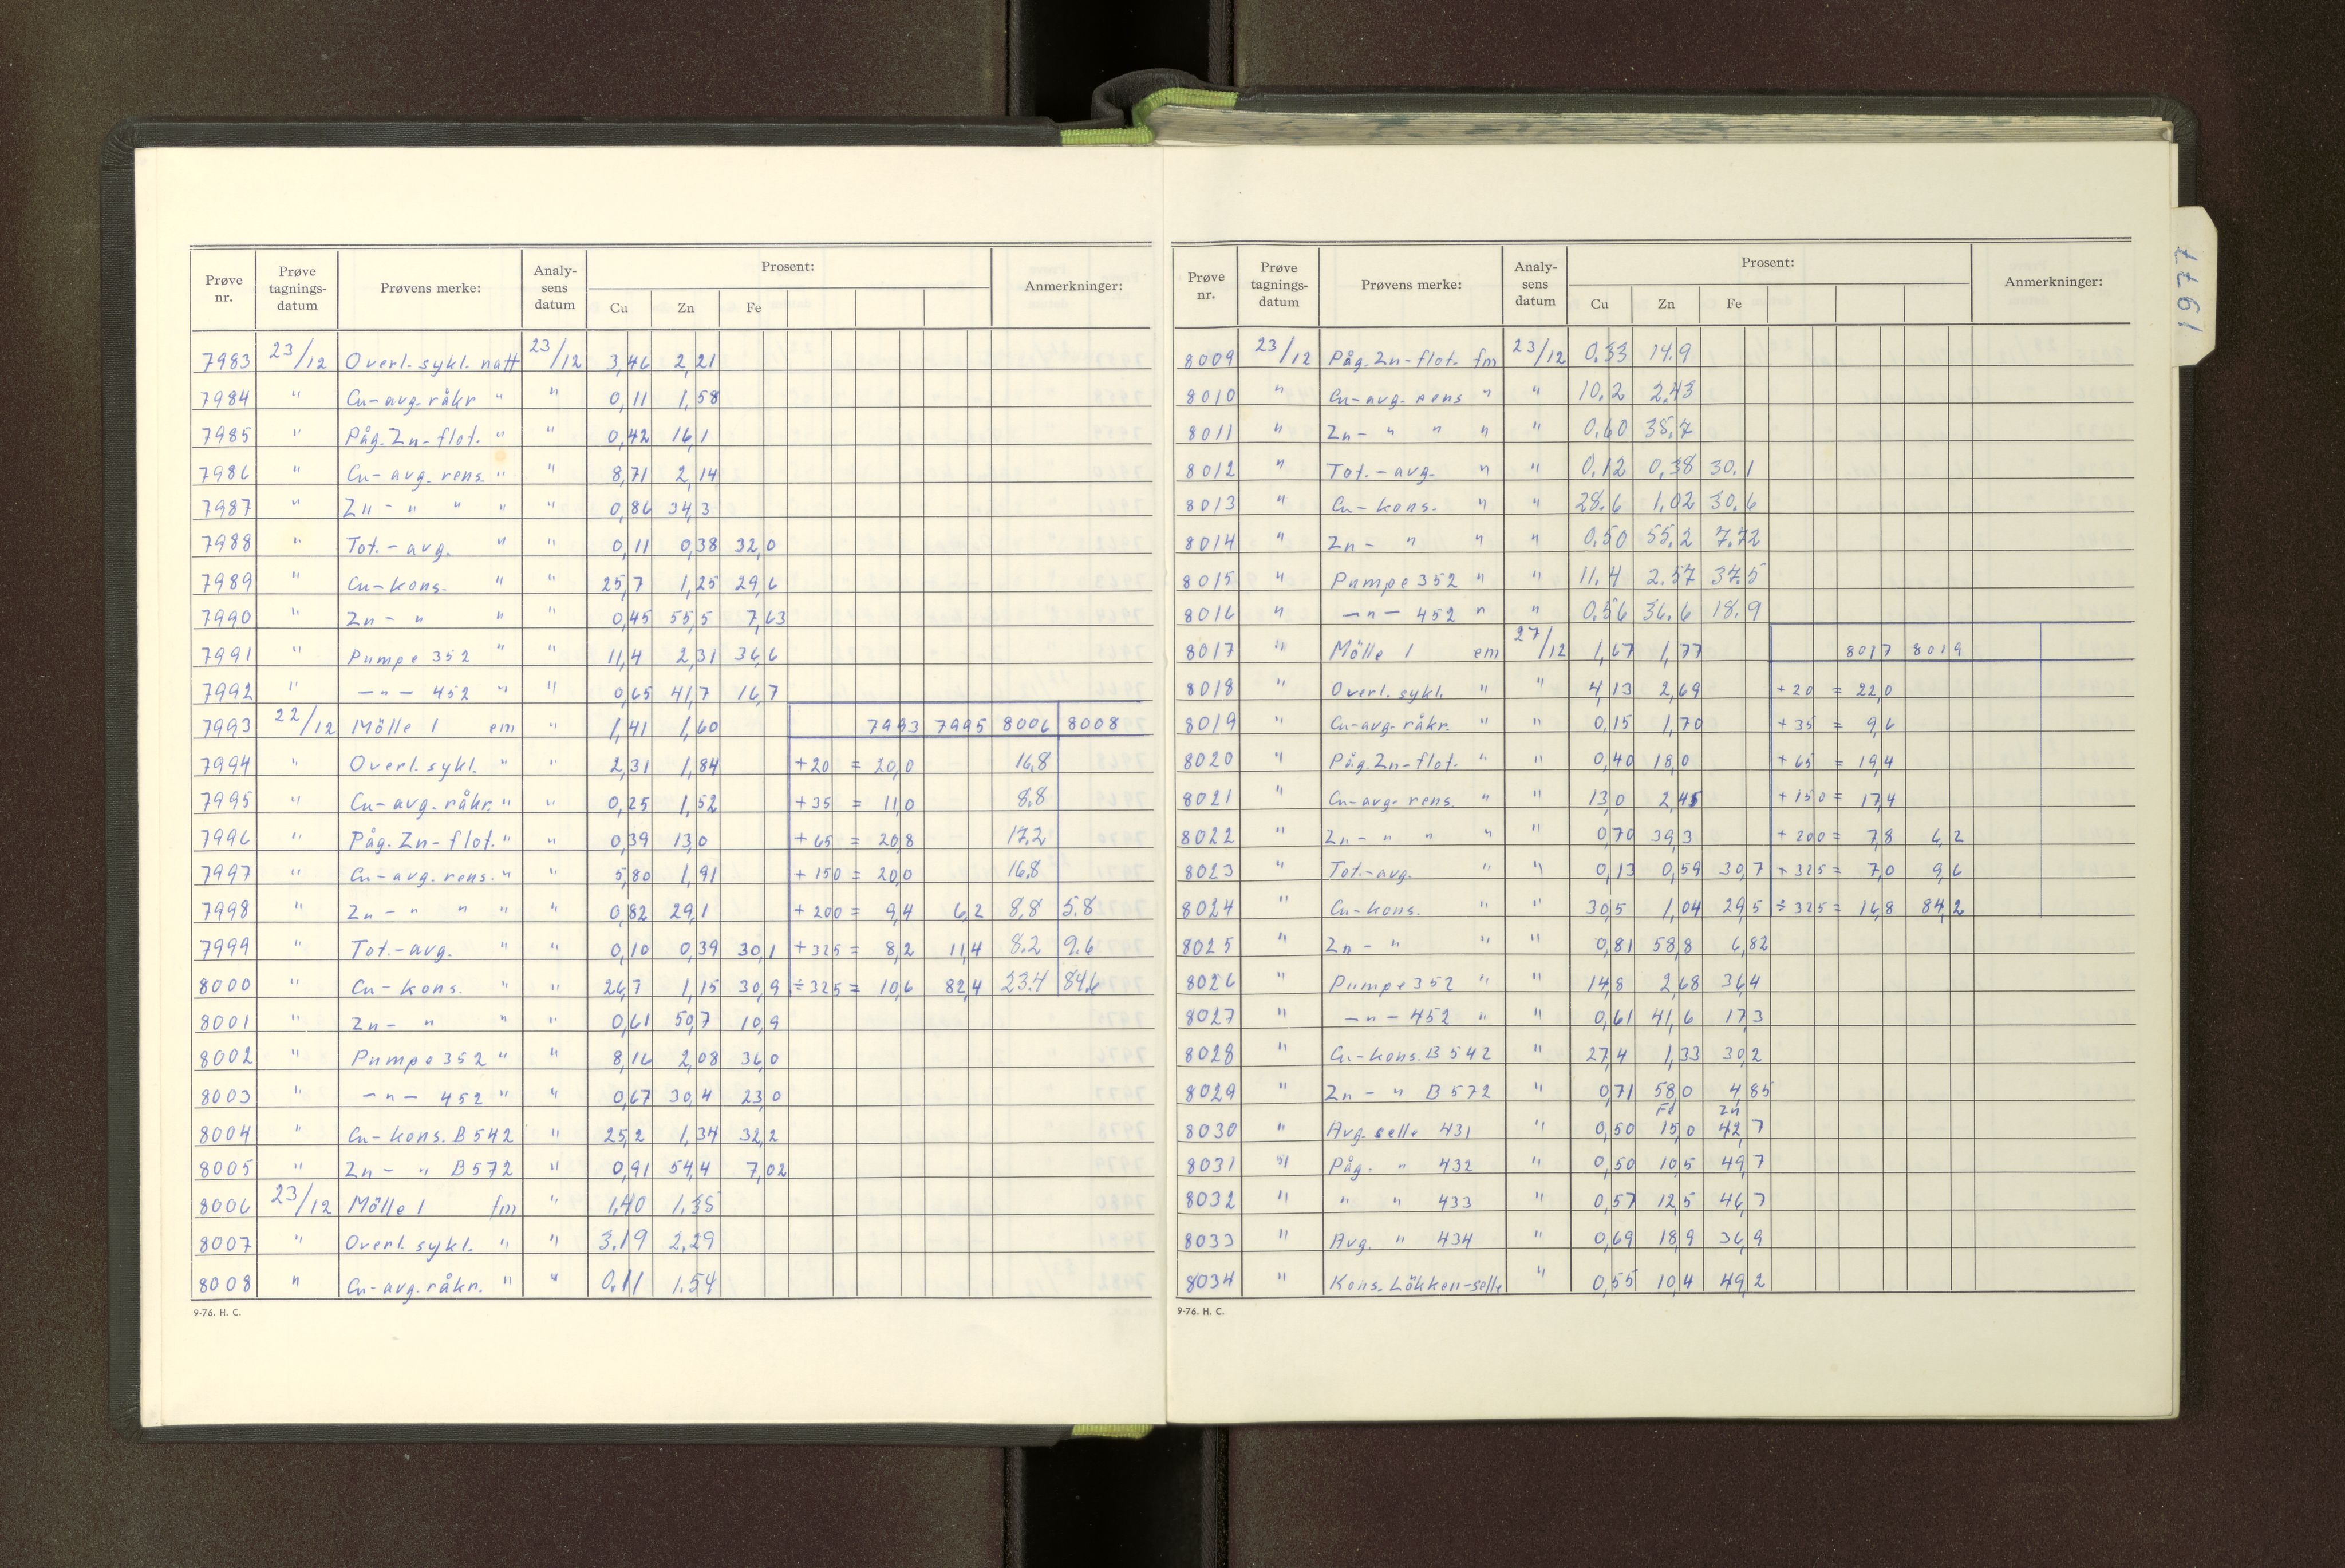 Prøve nr. Prøve tagnings-datum Prøvens merke: Analy-sens datum Prosent: Anmerkninger:
Cu Zn Fe
7983 23/12 Overl. sykl. natt 23/12 3,46 2,21
7984 " Cu-avg. råkr " " 0,11 1,58
7985 " Påg. Zn-flot. " " 0,42 16,1
7986 " Cu-avg. rens. " " 8,71 2,14
7987 " Zn - " " " " 0,86 34,3
7988 " Tot.-avg. " " 0,11 0,38 32,0
7989 " Cu-kons. " " 25,7 1,25 29,6
7990 " Zn - " " " 0,45 55,5 7,63
7991 " Pumpe 352 " " 11,4 2,31 36,6
7992 " —"— 452 " " 0,65 41,7 16,7
7993 22/12 Mölle 1 em " 1,41 1,60 7993 7995 8006 8008
7994 " Overl. sykl. " " 2,31 1,84 +20 = 20,0 16,8
7995 " Cu-avg. råkr. " " 0,25 1,52 +35 = 11,0 8,8
7996 " Påg. Zn-flot. " " 0,39 13,0 +65 = 20,8 17,2
7997 " Cu-avg. rens. " " 5,80 1,91 +150 = 20,0 16,8
7998 " Zn - " " " " 0,82 29,1 +200 = 9,4 6,2 8,8 5,8
7999 " Tot.-avg. " " 0,10 0,39 30,1 +325 = 8,2 11,4 8,2 9,6
8000 " Cu-kons. " " 26,7 1,15 30,9 ÷325 = 10,6 82,4 23,4 84,6
8001 " Zn - " " " 0,61 50,7 10,9
8002 " Pumpe 352 " " 8,16 2,08 36,0
8003 " —"— 452 " " 0,67 30,4 23,0
8004 " Cu-kons. B 542 " 25,2 1,34 32,2
8005 " Zn - " B 572 " 0,91 54,4 7,02
8006 23/12 Mölle 1 fm " 1,40 1,35
8007 " Overl. sykl. " " 3,19 2,29
8008 " Cu-avg. råkr. " " 0,11 1,54
9-76. H. C.
Prøve nr. Prøve tagnings-datum Prøvens merke: Analy-sens datum Prosent: Anmerkninger:
Cu Zn Fe
8009 23/12 Påg. Zn-flot. fm 23/12 0,33 14,9
8010 " Cu-avg. rens " " 10,2 2,43
8011 " Zn - " " " " 0,60 35,7
8012 " Tot.-avg. " " 0,12 0,38 30,1
8013 " Cu-kons. " " 28,6 1,02 30,6
8014 " Zn - " " " 0,50 55,2 7,72
8015 " Pumpe 352 " " 11,4 2,57 37,5
8016 " —"— 452 " " 0,56 36,6 18,9
8017 " Mölle 1 em 27/12 1,67 1,77 8017 8019
8018 " Overl. sykl. " " 4,13 2,69 +20 = 22,0
8019 " Cu-avg. råkr. " " 0,15 1,70 +35 = 9,6
8020 " Påg. Zn-flot. " " 0,40 18,0 +65 = 19,4
8021 " Cu-avg. rens. " " 13,0 2,45 +150 = 17,4
8022 " Zn - " " " " 0,70 39,3 +200 = 7,8 6,2
8023 " Tot.-avg. " " 0,13 0,59 30,7 +325 = 7,0 9,6
8024 " Cu-kons. " " 30,5 1,04 29,5 ÷325 = 16,8 84,2
8025 " Zn - " " " 0,81 58,8 6,82
8026 " Pumpe 352 " " 14,8 2,68 36,4
8027 " —"— 452 " " 0,61 41,6 17,3
8028 " Cu-kons. B 542 " 27,4 1,33 30,2
8029 " Zn - " B 572 " 0,71 58,0 4,85
Fe Zn
8030 " Avg. selle 431 " 0,50 15,0 42,7
8031 " Påg. " 432 " 0,50 10,5 49,7
8032 " " " 433 " 0,57 12,5 46,7
8033 " Avg. " 434 " 0,69 18,9 36,9
8034 " Kons. Lökken-selle " 0,55 10,4 49,2
9-76. H. C.
1977